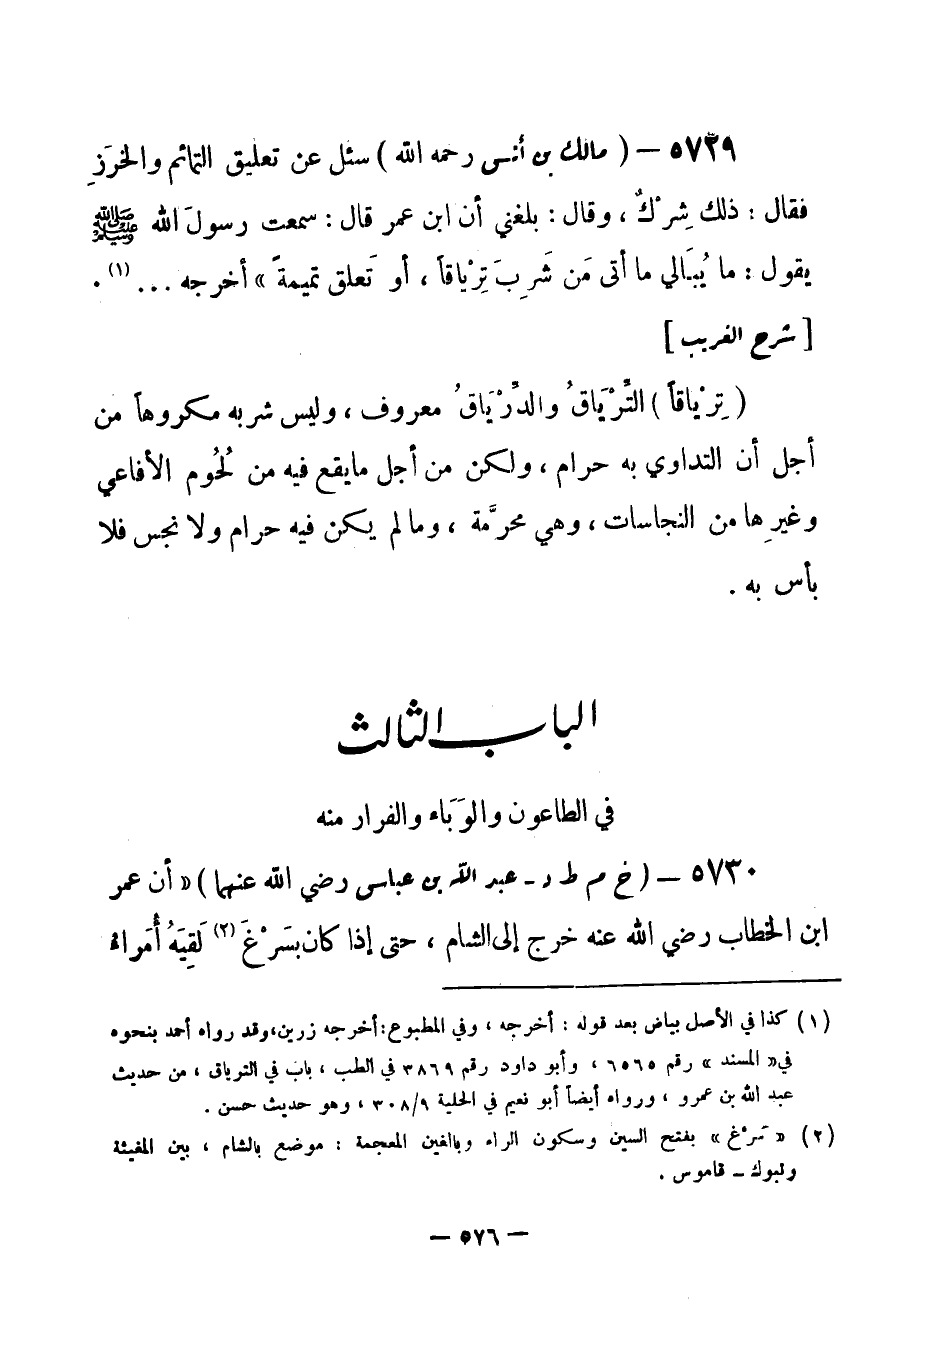 ٥٧٢٩ – ( مالك بن أنس رحمه الله ) سئل عن تعليق التمائم والخَرَزِ
فقال : ذلك شِرْكٌ ، وقال : بلغني أن ابن عمر قال : سمعت رسولَ الله ﷺ
يقول : ما يُبَالي ما أتى مَن شَرِبَ تِرْياقاً ، أو تَعلق تميمةً » أخرجه ... (١) .
[ شرح الغريب ]
( تِرْياقاً ) التِّرْيَاقُ والدِّرْيَاقُ معروف ، وليس شربه مكروهاً من
أجل أن التداوي به حرام ، ولكن من أجل مايقع فيه من لُحُوم الأفاعي
وغيرِها من النجاسات ، وهي محرَّمة ، وما لم يكن فيه حرام ولا نجس فلا
بأس به .
الباب الثالث
في الطاعون والوَبَاء والفرار منه
٥٧٣٠ – ( خ م ط د - عبد الله بن عباس رضي الله عنهما ) « أن عمر
ابن الخطاب رضي الله عنه خرج إلى الشام ، حتى إذا كان بسَرْغَ (٢) لَقِيَهُ أُمَراءُ
(١) كذا في الأصل بياض بعد قوله : أخرجه ، وفي المطبوع : أخرجه رزين ، وقد رواه أحمد بنحوه
في « المسند » رقم ٦٥٦٥ ، وأبو داود رقم ٣٨٦٩ في الطب ، باب في الترياق ، من حديث
عبد الله بن عمرو ، ورواه أيضاً أبو نعيم في الحلية ٣٠٨/٩ ، وهو حديث حسن .
(٢) « سَرْغ » بفتح السين وسكون الراء وبالغين المعجمة : موضع بالشام ، بين المغيثة
وتبوك – قاموس .
– ٥٧٦ –